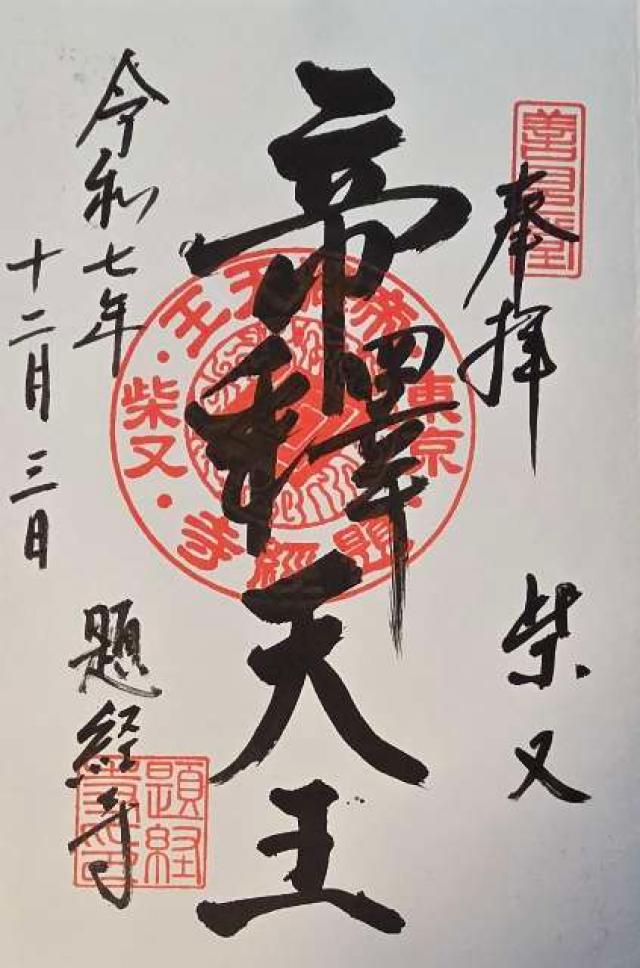 奉拝
柴又
帝釋天王
令和七年
十二月三日
題経寺
帝釋天王
東京
柴又
題經寺
題経寺印